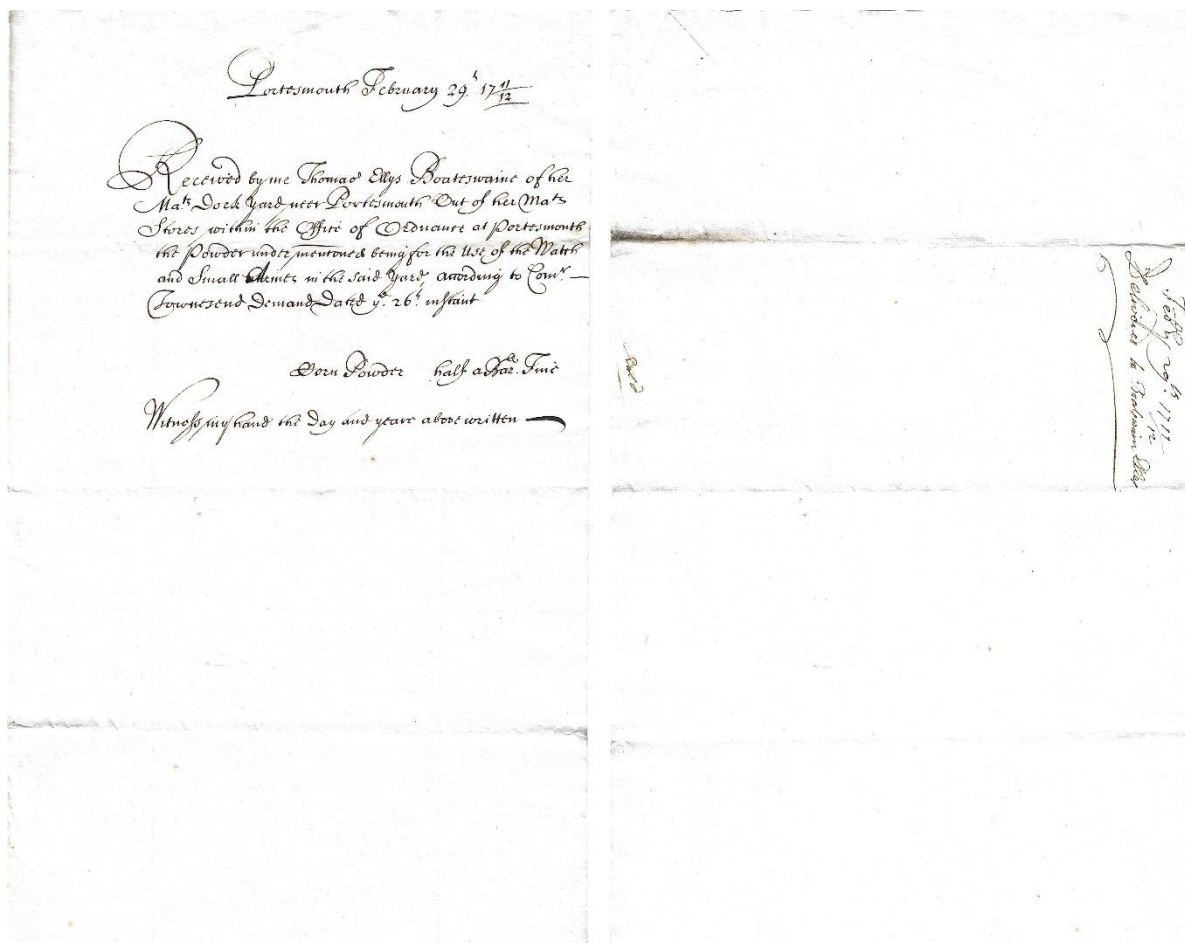 Portesmouth February 29th 17 11/12
Received by me Thomas Ellys Boateswaine of her
Mats Dock Yard neer Portesmouth Out of her Mats
Stores within the Office of Ordnance at Portesmouth
the Powder under mentoned being for the Use of the Watch
and Small Armes in the said Yard, according to Comr
Townesend Demand Dated ye 26th instant
Corn Powder half a Barll Fine
Witness my hand the Day and yeare above written
Febry 29th 17 11/12
Delivered to Boatswain Ellys